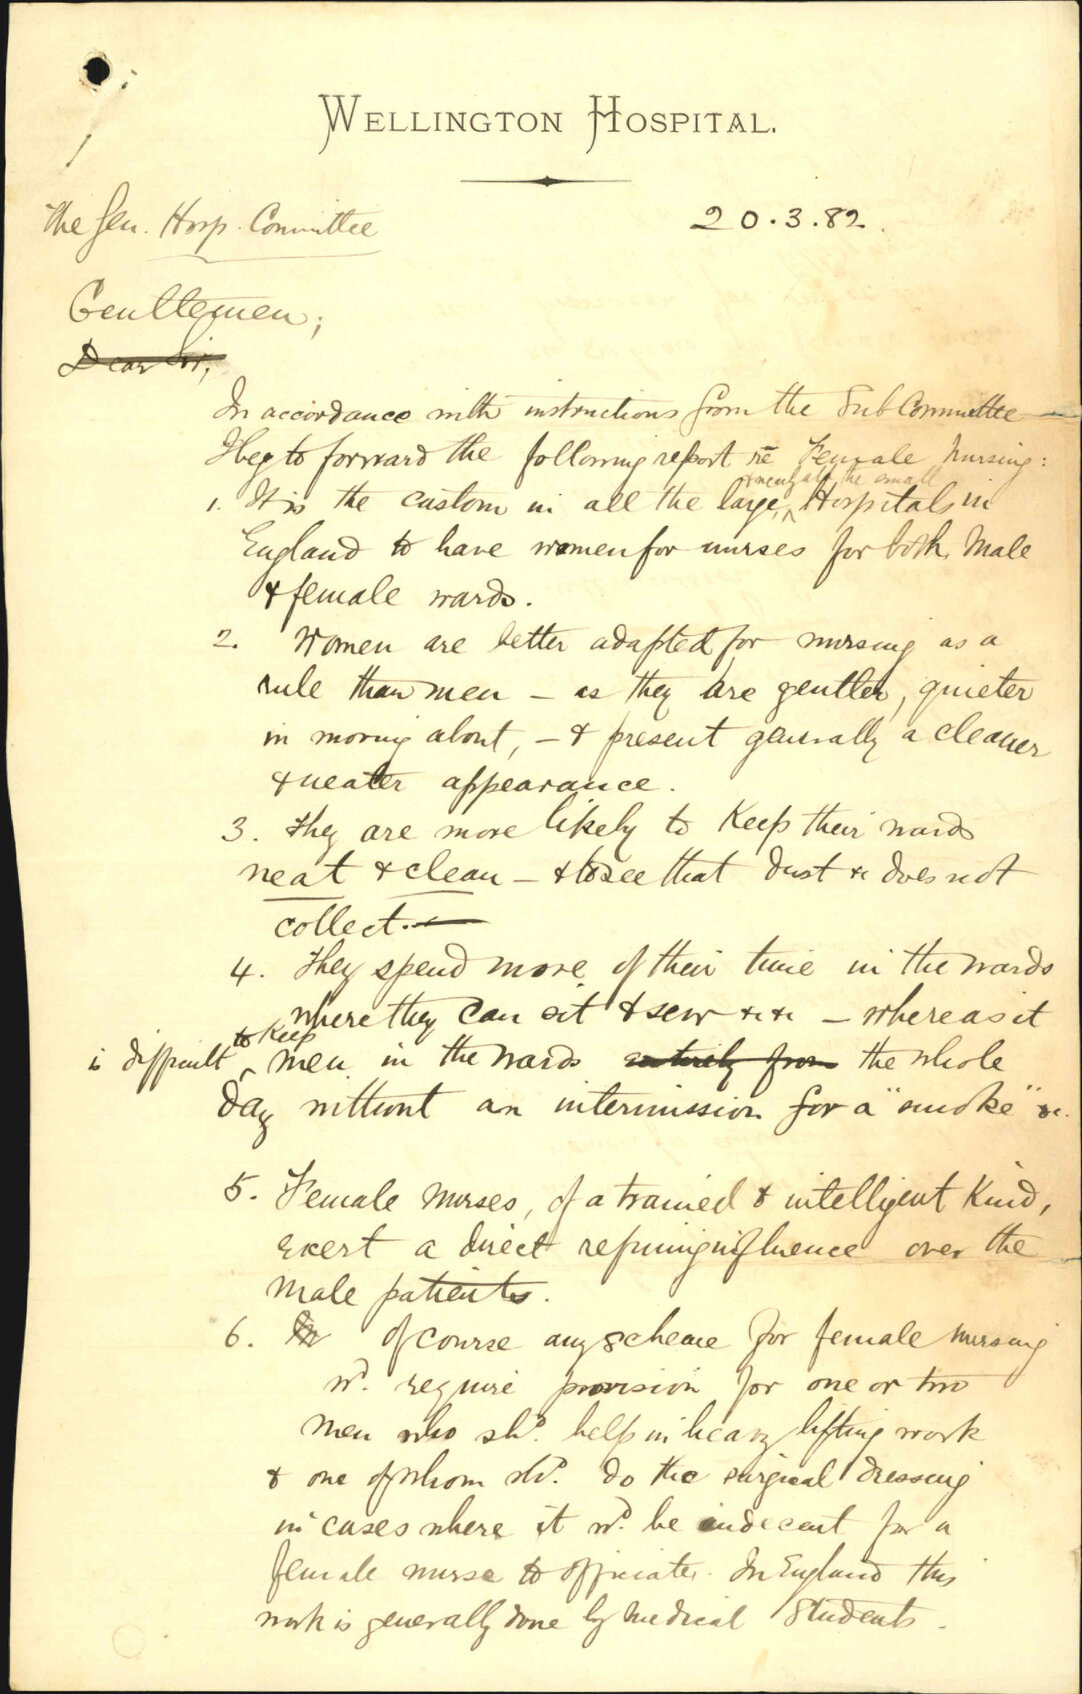 WELLINGTON HOSPITAL.
The Gen. Hosp. Committee
20.3.82.
Gentlemen;
Dear Sir,
In accordance with instructions from the Sub Committee
I beg to forward the following report re Female Nursing:
& nearly all the small
1. It is the custom in all the large, ^ Hospitals in
England to have women for nurses for both Male
& female wards.
2. Women are better adapted for nursing as a
rule than men – as they are gentler, quieter
in moving about, – & present generally a cleaner
& neater appearance.
3. They are more likely to Keep their wards
neat & clean – & to see that dust &c does not
collect. –
4. They spend more of their time in the wards
where they can sit & sew &c &c – whereas it
to Keep
is difficult ^ men in the wards entirely from the whole
day without an intermission for a "smoke" &c.
5. Female Nurses, of a trained & intelligent Kind,
exert a direct refining influence over the
Male patients.
6. Of course any scheme for female nursing
wd. require provision for one or two
Men who shd. help in heavy lifting work
& one of whom shd. do the surgical dressing
in cases where it wd. be indecent for a
female nurse to officiate. In England this
work is generally done by Medical Students.